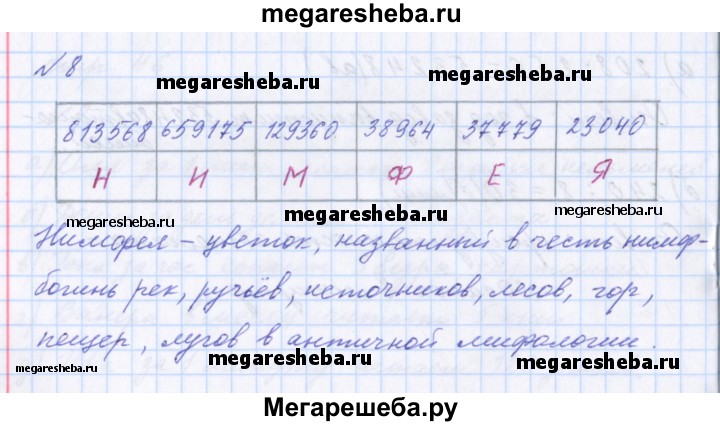 megaresheba.ru
№ 8
megaresheba.ru
megaresheba.ru
813568 659175 129360 38964 37779 23040
Н И М Ф Е Я
megaresheba.ru
megaresheba.ru
megaresheba.ru
Нимфея – цветок, названный в честь нимф-
богинь рек, ручьёв, источников, лесов, гор,
пещер, лугов в античной мифологии.
megaresheba.ru
megaresheba.ru
megaresheba.ru
Мегарешеба.ру